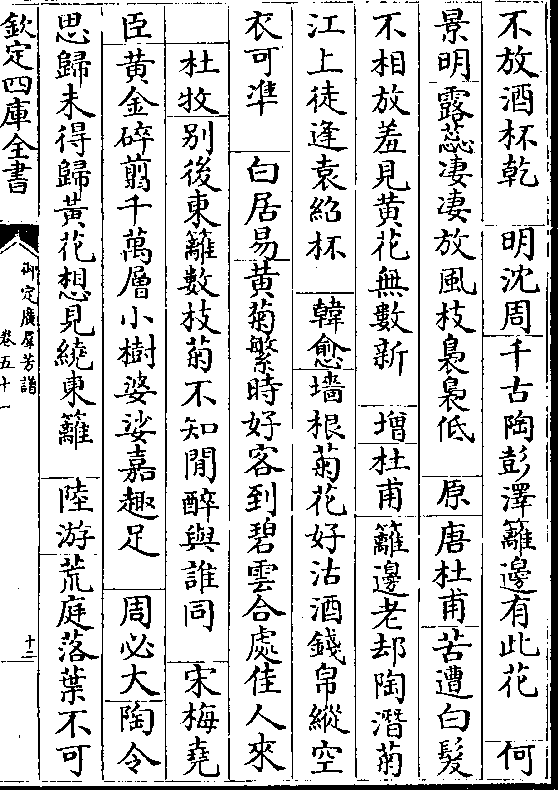 不放酒杯乾　明沈周千古陶彭澤籬邊有此花　何
景明露蕊凄凄放風枝裊裊低　原唐杜甫苦遭白髮
不相放羞見黄花無數新　增杜甫籬邊老却陶潛菊
江上徒逢袁紹杯　韓愈墻根菊花好沽酒錢帛縱空
衣可準　白居易黄菊繁時好客到碧雲合處佳人來
杜牧别後東籬數枝菊不知閒醉與誰同　宋梅堯
臣黄金碎翦千萬層小樹婆娑嘉趣足　周必大陶令
思歸未得歸黄花想見繞東籬　陸游荒庭落葉不可
欽定四庫全書
御定廣羣芳譜
卷五十一
十二